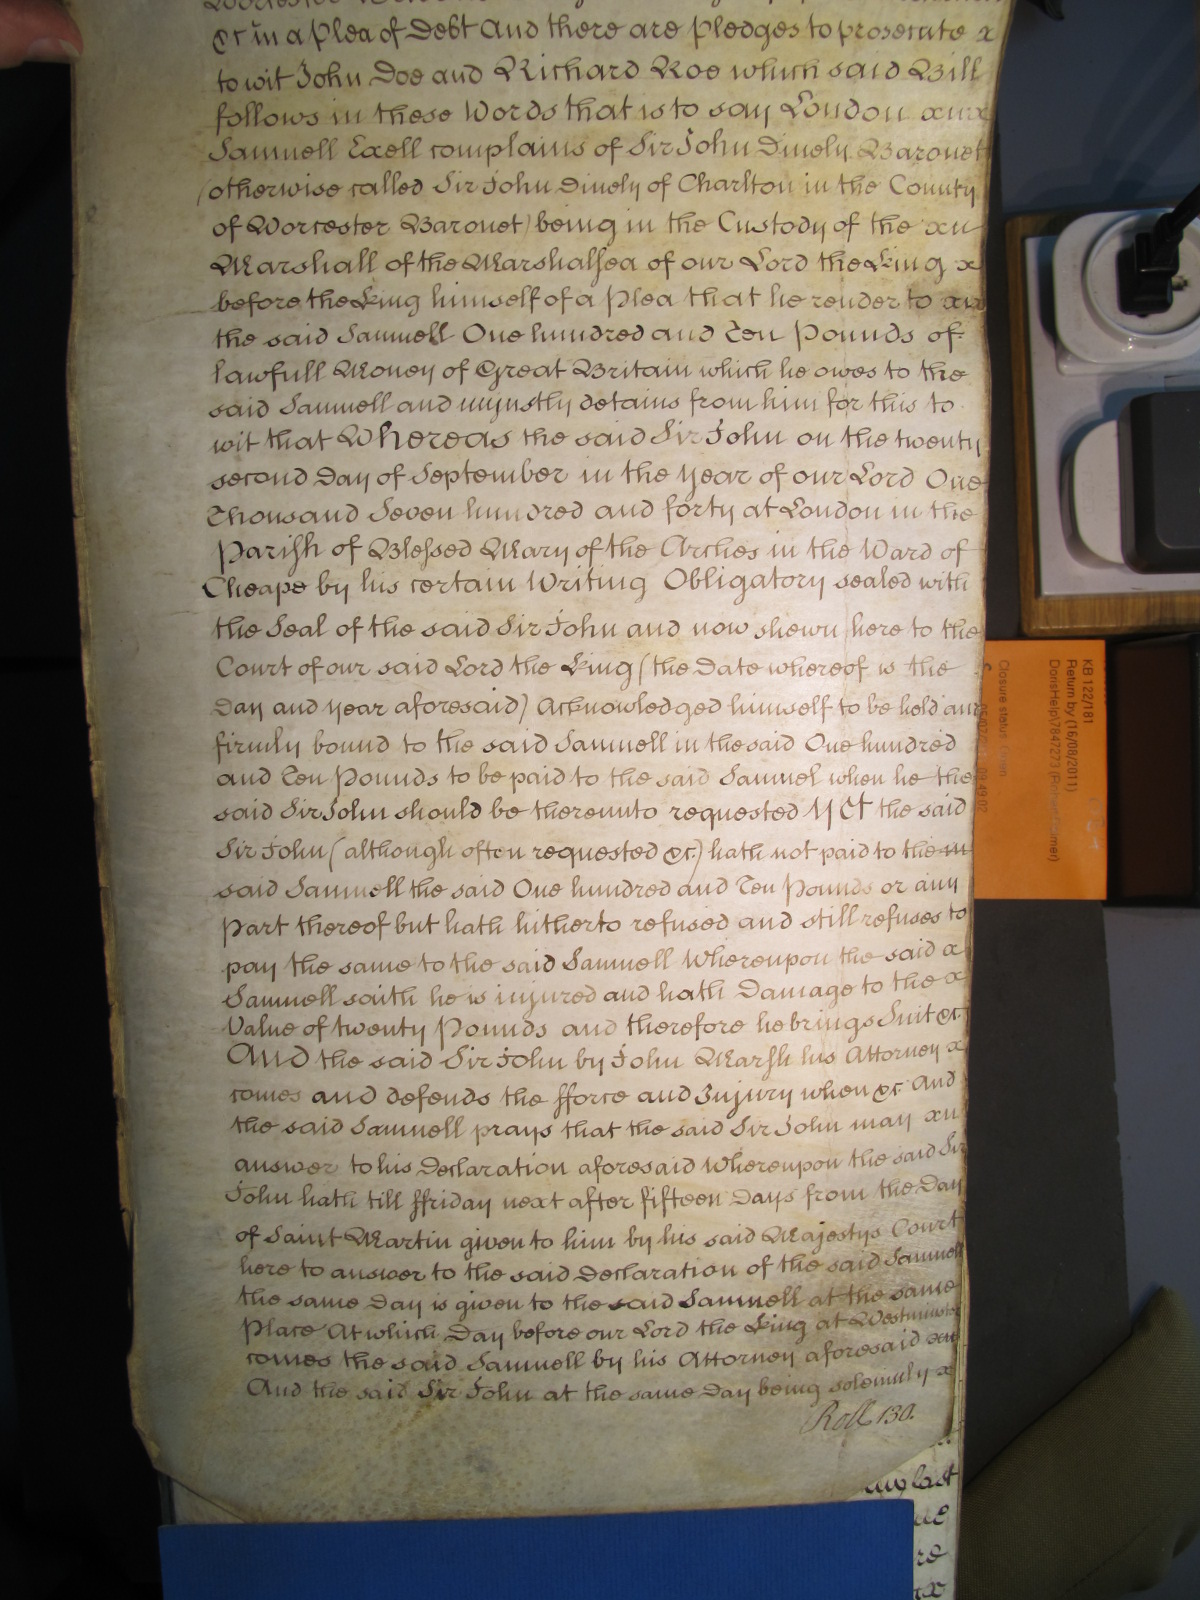 &c in a Plea of Debt And there are Pledges to prosecute x
to wit John Doe and Richard Roe which said Bill
follows in these Words that is to say London
Samuell Exell complains of Sir John Dinely Baronet
(otherwise called Sir John Dinely of Charlton in the County
of Worcester Baronet) being in the Custody of the
Marshall of the Marshalsea of our Lord the King x
before the King himself of a Plea that he render to
the said Samuell One hundred and Ten Pounds of
lawfull Money of Great Britain which he owes to the
said Samuell and unjustly detains from him for this to
wit that Whereas the said Sir John on the twenty
second Day of September in the year of our Lord One
Thousand Seven hundred and forty at London in the
Parish of Blessed Mary of the Arches in the Ward of
Cheape by his certain Writing Obligatory sealed with
the Seal of the said Sir John and now shewn here to the
Court of our said Lord the King (the Date whereof is the
Day and year aforesaid) Acknowledged himself to be held and
firmly bound to the said Samuell in the said One hundred
and Ten Pounds to be paid to the said Samuel when he the
said Sir John should be thereunto requested Yet the said
Sir John (although often requested &c.) hath not paid to the
said Samuell the said One hundred and Ten Pounds or any
Part thereof but hath hitherto refused and still refuses to
pay the same to the said Samuell Whereupon the said x
Samuell saith he is injured and hath Damage to the x
Value of twenty Pounds and therefore he brings Suit &c.
And the said Sir John by John Marsh his Attorney x
comes and defends the fforce and Injury when &c And
the said Samuell prays that the said Sir John may
answer to his Declaration aforesaid Whereupon the said Sir
John hath till ffriday next after fifteen Days from the Day
of Saint Martin given to him by his said Majestys Court
here to answer to the said Declaration of the said Samuell
the same Day is given to the said Samuell at the same
Place At which Day before our Lord the King at Westminster
comes the said Samuell by his Attorney aforesaid
And the said Sir John at the same Day being solemnly x
Roll 130.
last
KB 122/181
Return by (16/08/2011)
Closure status: Open